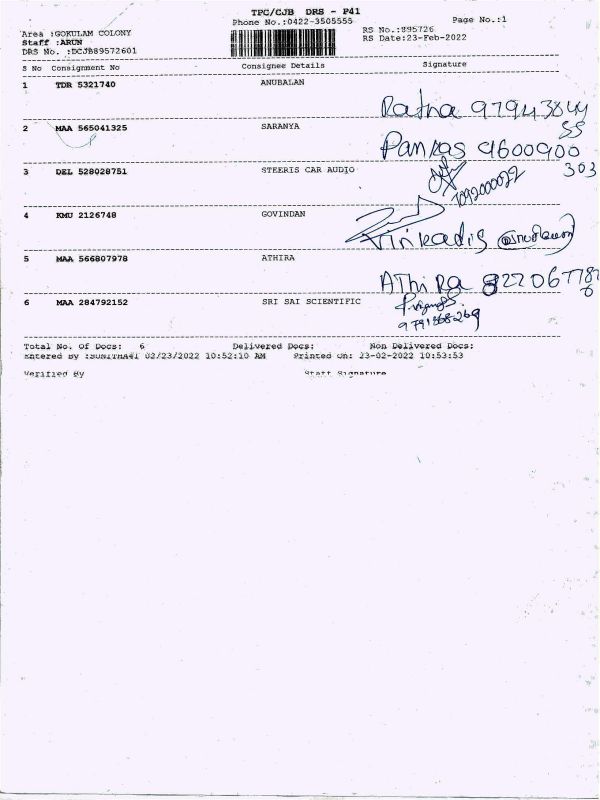 TPC/CJB DRS - P41
Phone No.:0422-3505555 Page No.:1
Area :GOKULAM COLONY RS No.:895726
Staff :ARUN RS Date:23-Feb-2022
DRS No. :DCJB89572601
S No Consignment No Consignee Details Signature
1 TDR 5321740 ANUBALAN
Ratna 97943844
55
2 MAA 565041325 SARANYA
Pankas 9600900
303
3 DEL 528028751 STEERIS CAR AUDIO
7092000022
4 KMU 2126748 GOVINDAN
5 MAA 566807978 ATHIRA
AThiRa 822067787
6
6 MAA 284792152 SRI SAI SCIENTIFIC
Total No. Of Docs: 6 Delivered Docs: Non Delivered Docs:
Entered By :SUNITHA41 02/23/2022 10:52:10 AM Printed On: 23-02-2022 10:53:53
Verified By Staff Signature